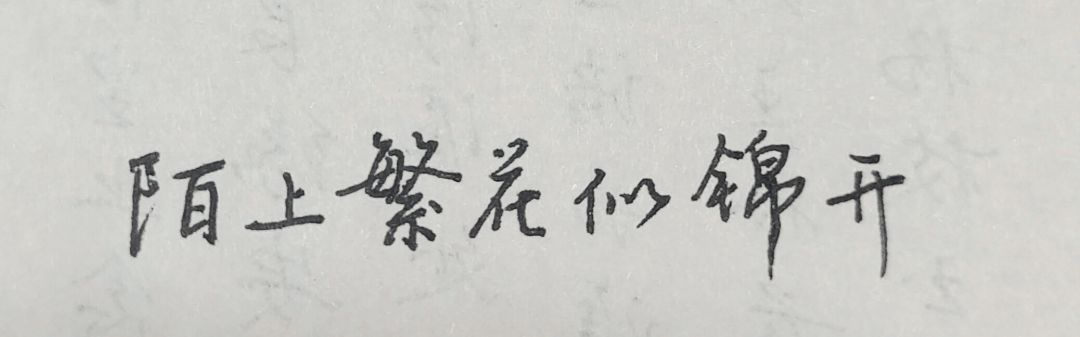 陌上繁花似锦开